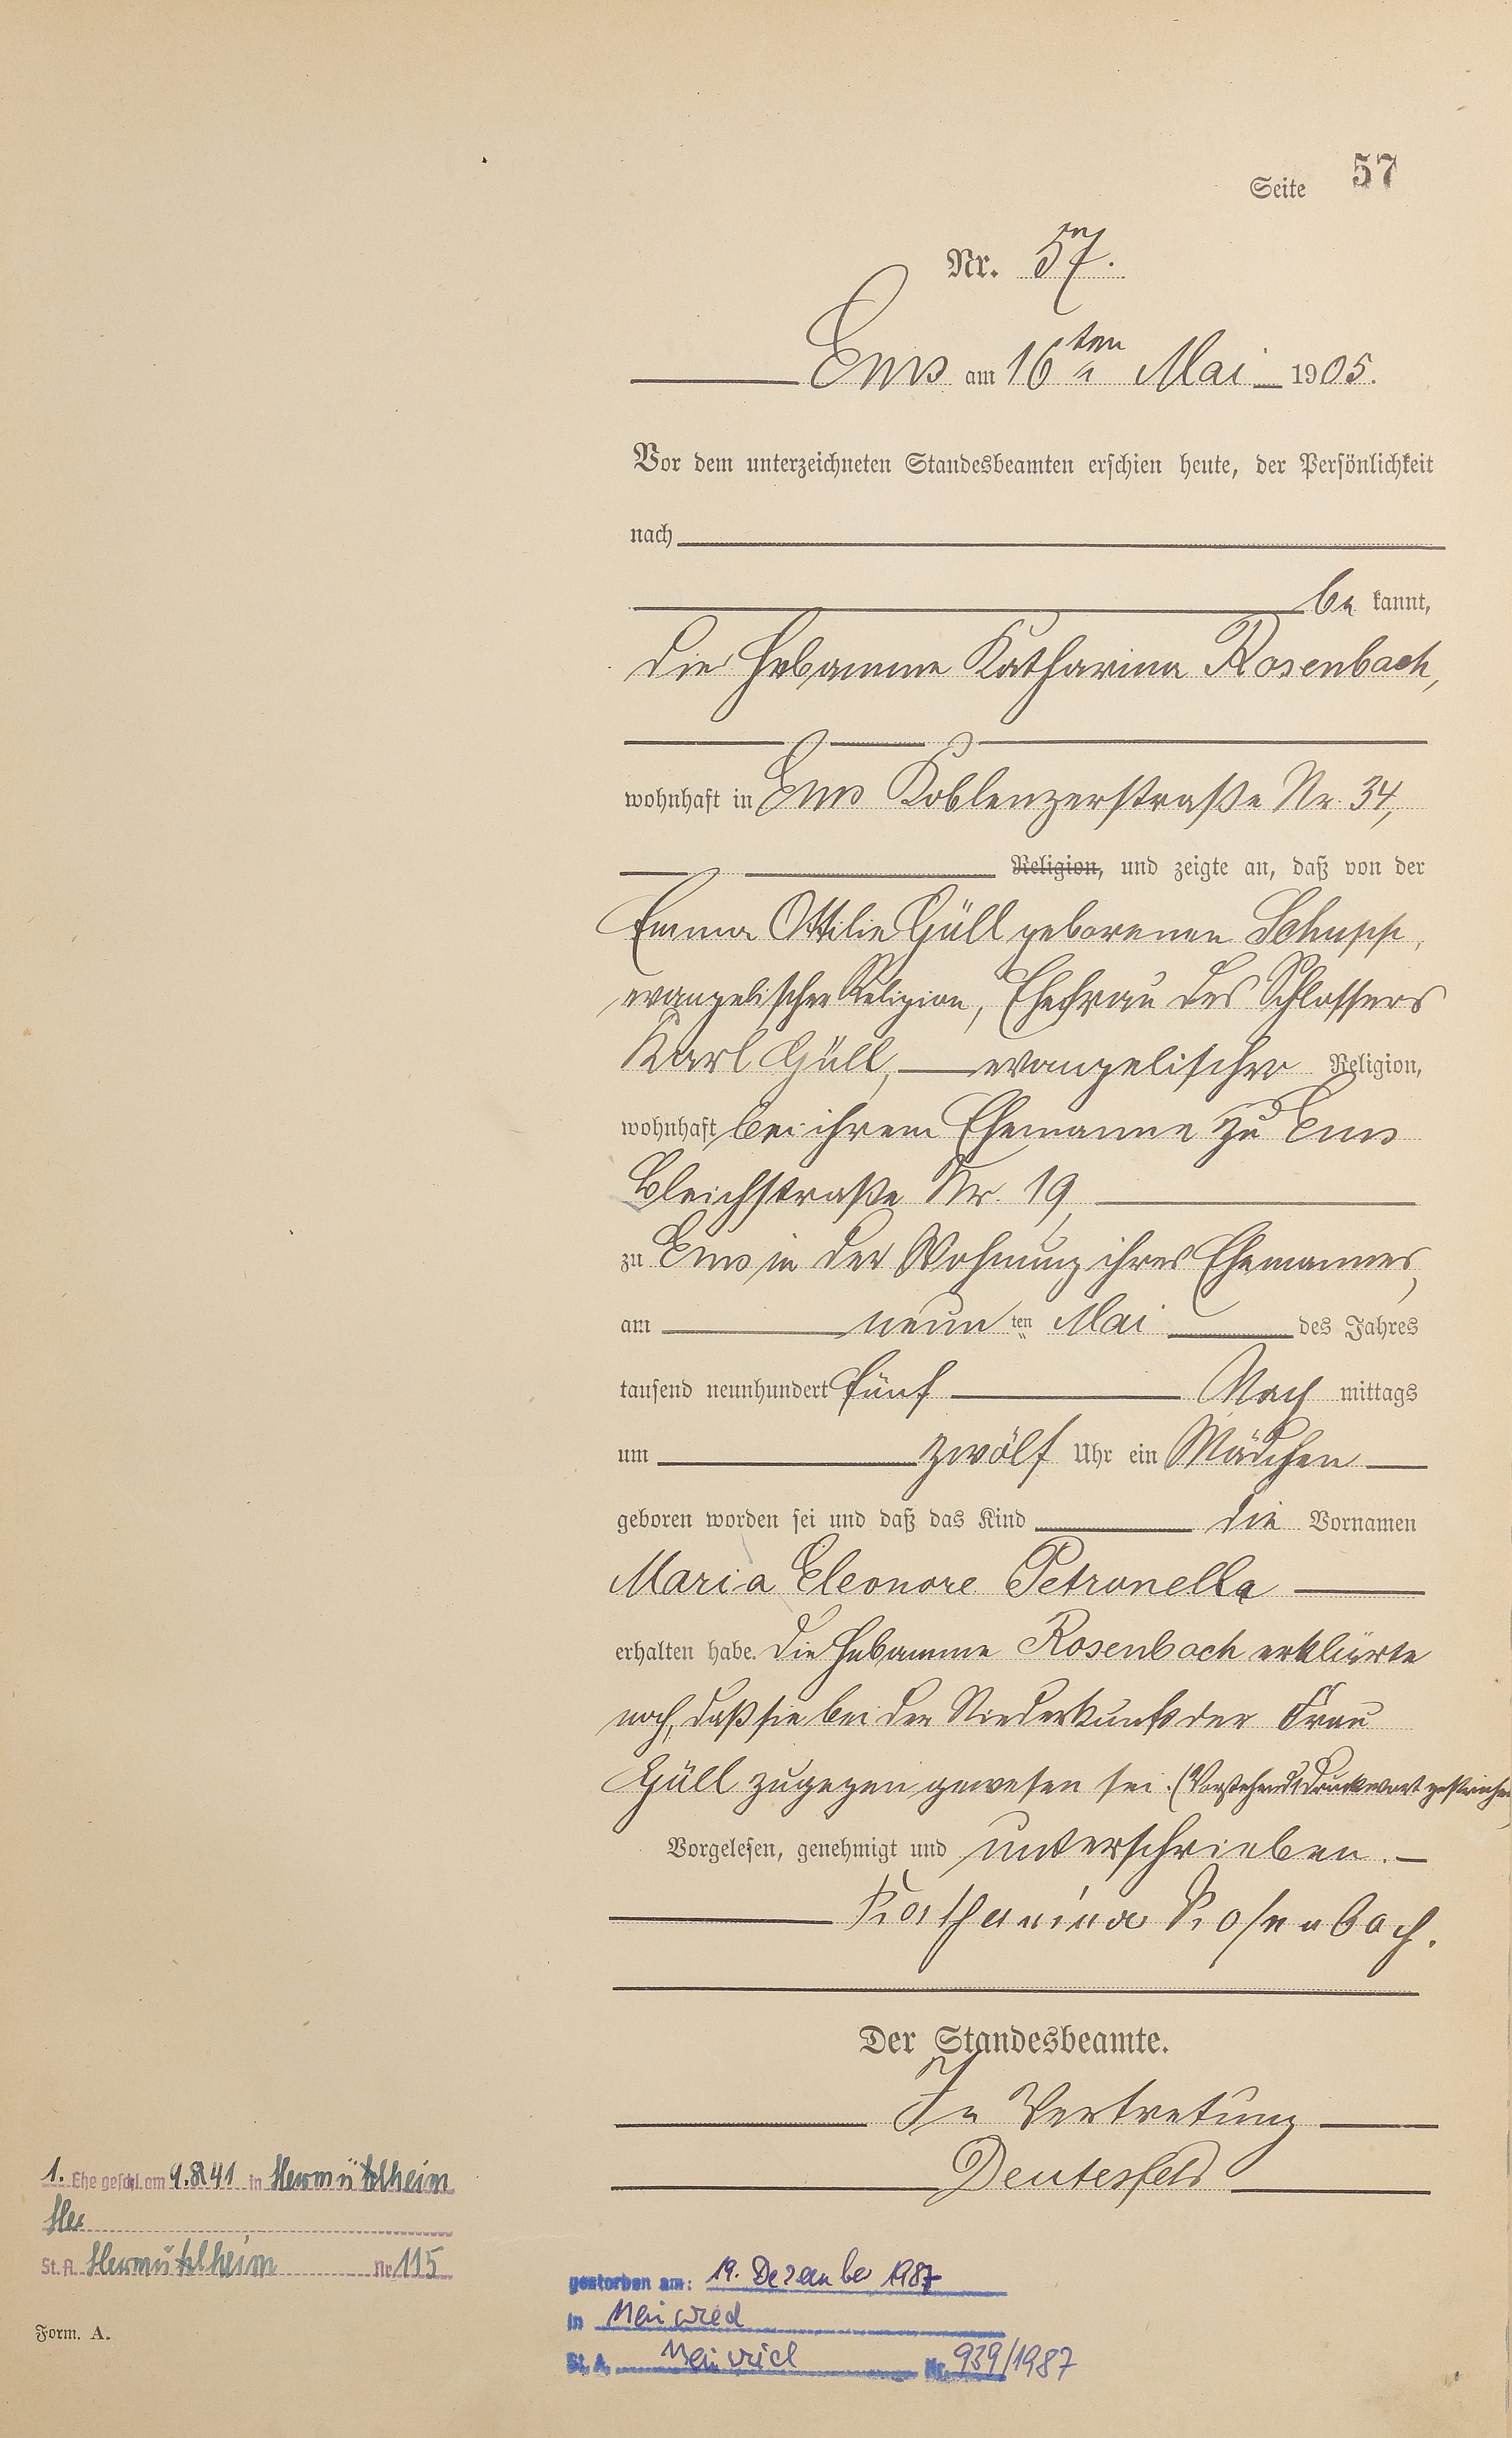 Seite 57
Nr. 57.
Ems am 16ten Mai 1905.
Vor dem unterzeichneten Standesbeamten erschien heute, der Persönlichkeit
nach
be kannt,
die Hebamme Katharina Rosenbach,
wohnhaft in Ems Koblenzerstraße Nr. 34,
Religion, und zeigte an, daß von der
Emma Ottilie Güll geborenen Schupp,
evangelischer Religion, Ehefrau des Schlossers
Karl Güll, evangelischer Religion,
wohnhaft bei ihrem Ehemanne zu Ems
Bleichstraße Nr. 19,
zu Ems in der Wohnung ihres Ehemannes,
am neun ten Mai des Jahres
tausend neunhundert fünf Nach mittags
um zwölf Uhr ein Mädchen
geboren worden sei und daß das Kind die Vornamen
Maria Eleonore Petronella
erhalten habe. Die Hebamme Rosenbach erklärte
noch, daß sie bei der Niederkunft der Frau
Güll zugegen gewesen sei. (Vorstehends Druckwort gestrichen)
Vorgelesen, genehmigt und unterschrieben.
Katharina Rosenbach.
Der Standesbeamte.
In Vertretung
Deutesfeld
1. Ehe geschl. am 9.8.41 in Hermülheim
St. A. Hermülheim Nr. 115
gestorben am: 19. Dezember 1987
in Neuwied
St. A. Neuwied Nr. 939/1987
Form. A.